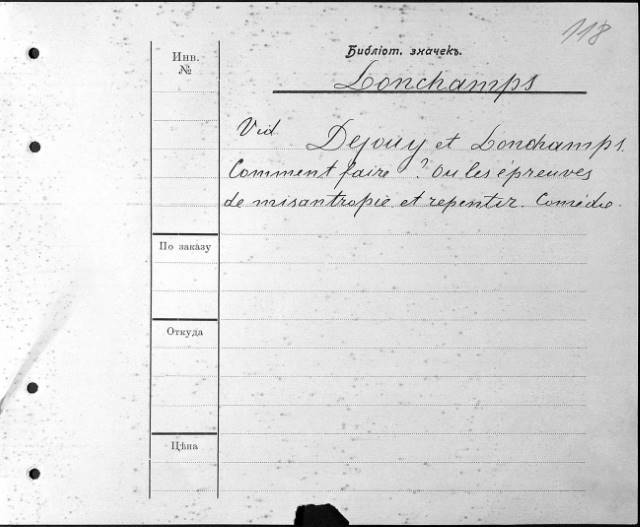 118
Инв.
№
Библіот. значекъ.
Lonchamps
Vid. Dejouy et Lonchamps.
Comment faire? Ou les épreuves
de misantropie et repentir. Comédie.
По заказу
Откуда
Цѣна